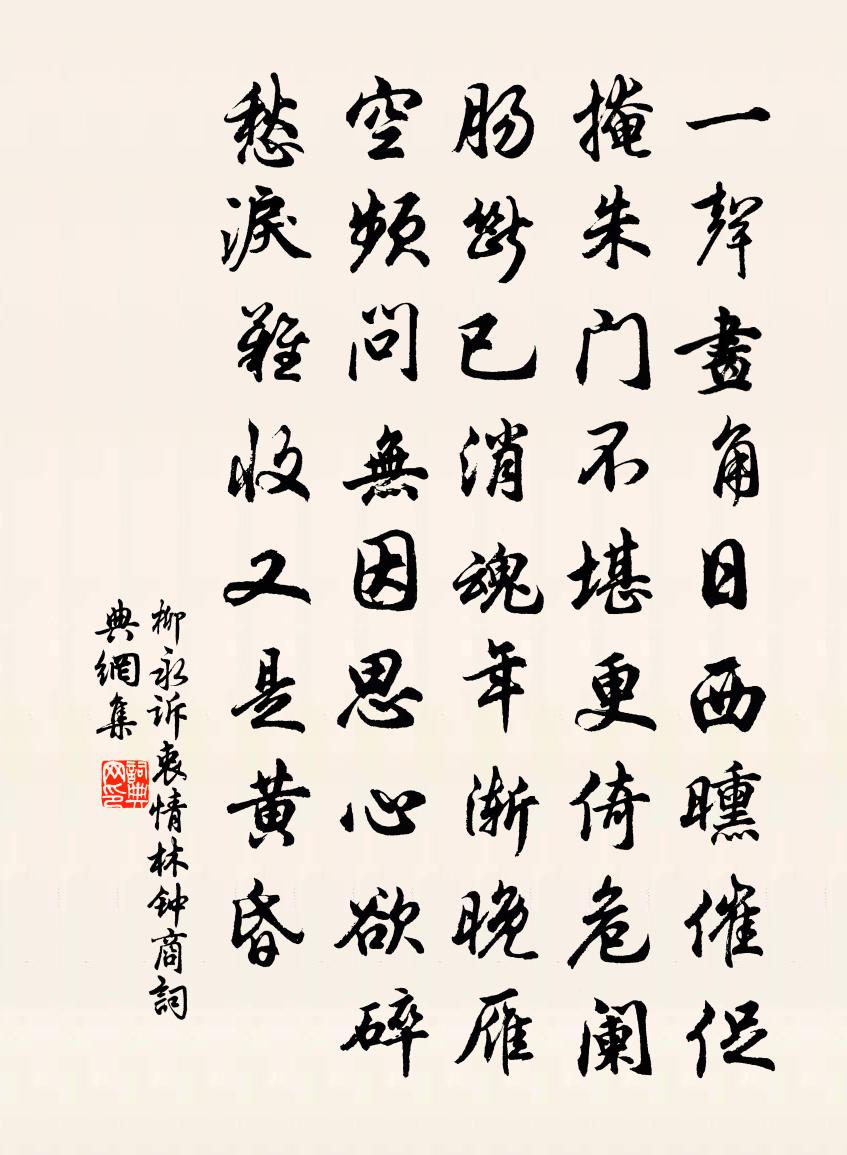 一聲畫角日西曛催促
掩朱门不堪更倚危阑
肠斷已消魂年渐晚雁
空頻问無因思心欲碎
愁淚難收又是黄昏
柳永诉衷情林钟商詞
典網集
詞典网印